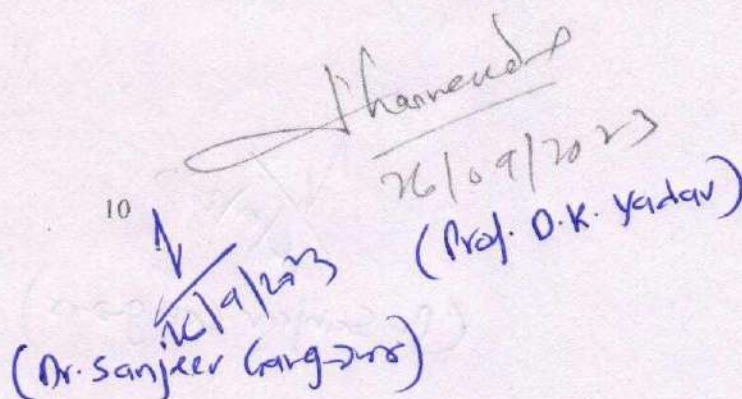 Dharmendra
26/09/2023
(Prof. D.K. Yadav)
10
26/9/2023
(Dr. Sanjeev Gangwar)